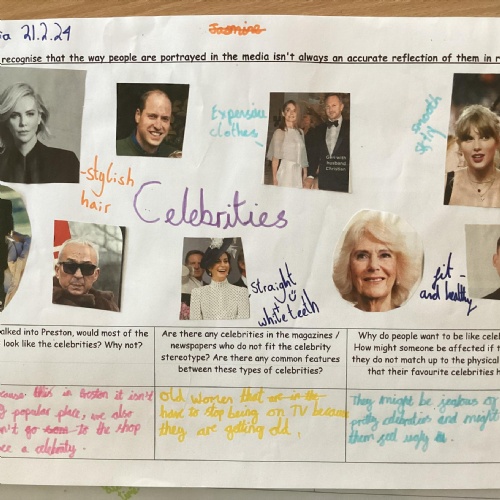 21.2.24
Jasmine
recognise that the way people are portrayed in the media isn't always an accurate reflection of them in r
Expensive
clothes
smooth
skin
Geri with
husband
Christian
-stylish
hair
Celebrities
straight
white teeth
fit -
and healthy
alked into Preston, would most of the
look like the celebrities? Why not?
Are there any celebrities in the magazines /
newspapers who do not fit the celebrity
stereotype? Are there any common features
between these types of celebrities?
Why do people want to be like celeb
How might someone be affected if t
they do not match up to the physical
that their favourite celebrities h
cause this in Preston it isn't
popular place, we also
n't go to the shop
see a celebrity.
old women that are in the
have to stop being on TV because
they are getting old,
They might be jealous of
pretty celebrities and might
them feel ugly